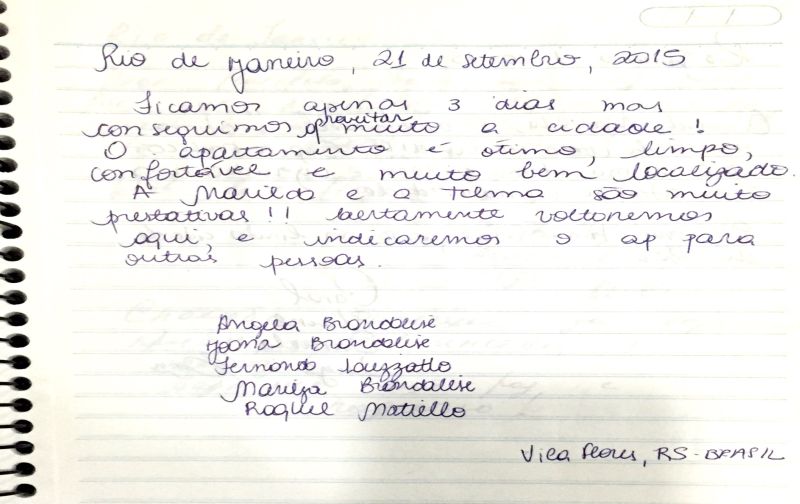 Rio de Janeiro, 21 de setembro, 2015
Ficamos apenas 3 dias mas
conseguimos aproveitar muito a cidade!
O apartamento é ótimo, limpo,
confortável e muito bem localizado.
A Marilda e a Telma são muito
prestativas!! Certamente voltaremos
aqui, e indicaremos o ap para
outras pessoas.
Angela Brandalise
Joana Brandalise
Fernando Luzzatto
Mariza Brandalise
Raquel Matiello
Vila Flores, RS - BRASIL